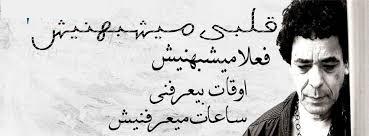 قلبى ميشبهنيش
فعلا ميشبهنيش
اوقات بيعرفنى
ساعات ميعرفنيش